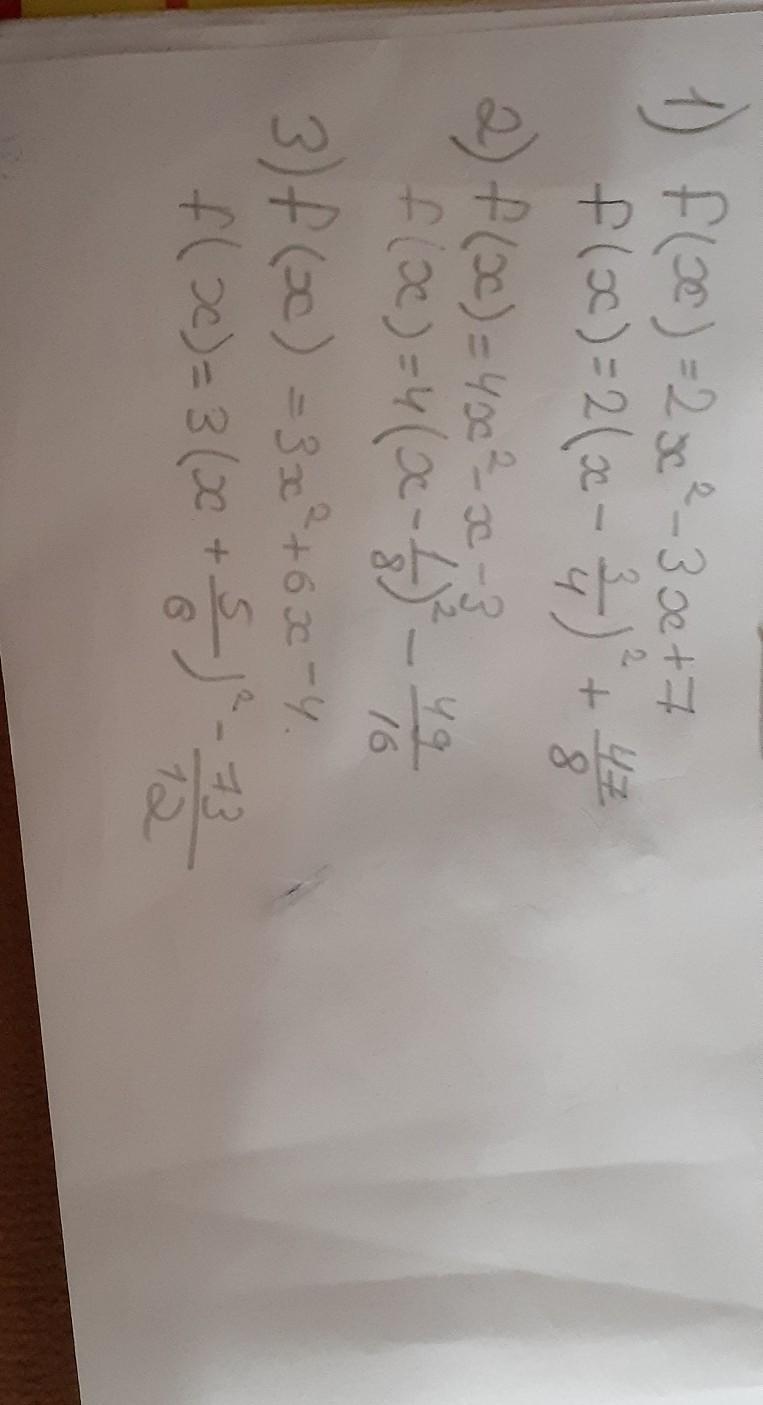 1) f(x) = 2x² - 3x + 7
f(x) = 2(x - 3/4)² + 47/8
2) f(x) = 4x² - x - 3
f(x) = 4(x - 1/8)² - 49/16
3) f(x) = 3x² + 6x - 4.
f(x) = 3(x + 5/6)² - 73/12